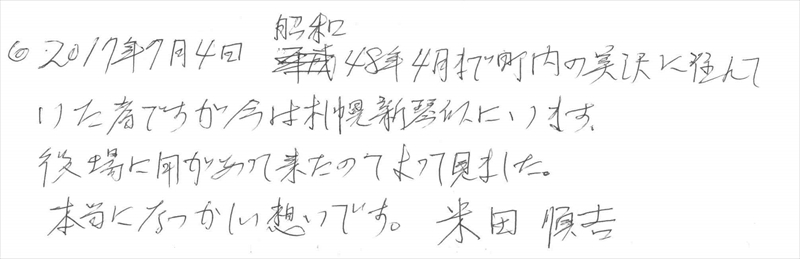 ◎2017年7月4日 昭和48年4月まで町内の美沢に住んで
いた者ですが今は札幌新琴似にいます。
役場に用があって来たのでよって見ました。
本当になつかしい想いです。 米田 順吉